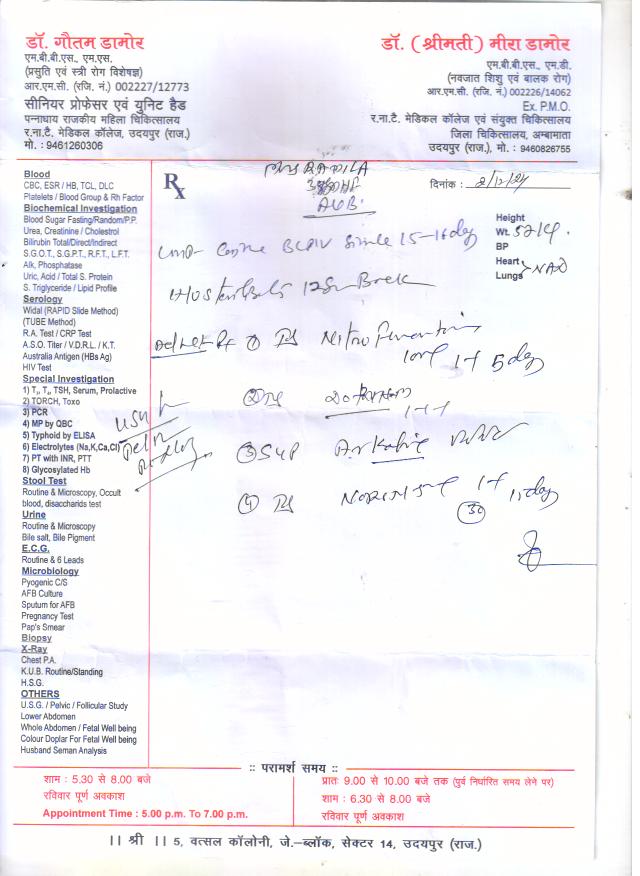 डॉ. गौतम डामोर
एम.बी.बी.एस., एम.एस.
(प्रसुति एवं स्त्री रोग विशेषज्ञ)
आर.एम.सी. (रजि. नं.) 002227/12773
सीनियर प्रोफेसर एवं युनिट हैड
पन्नाधाय राजकीय महिला चिकित्सालय
र.ना.टै. मेडिकल कॉलेज, उदयपुर (राज.)
मो. : 9461260306
डॉ. (श्रीमती) मीरा डामोर
एम.बी.बी.एस., एम.डी.
(नवजात शिशु एवं बालक रोग)
आर.एम.सी. (रजि. नं.) 002226/14062
Ex. P.M.O.
र.ना.टै. मेडिकल कॉलेज एवं संयुक्त चिकित्सालय
जिला चिकित्सालय, अम्बामाता
उदयपुर (राज.), मो. : 9460826755
Blood
CBC, ESR / HB, TCL, DLC
Platelets / Blood Group & Rh Factor
Biochemical Investigation
Blood Sugar Fasting/Random/P.P.
Urea, Creatinine / Cholestrol
Bilirubin Total/Direct/Indirect
S.G.O.T., S.G.P.T., R.F.T., L.F.T.
Alk, Phosphatase
Uric, Acid / Total S. Protein
S. Triglyceride / Lipid Profile
Serology
Widal (RAPID Slide Method)
(TUBE Method)
R.A. Test / CRP Test
A.S.O. Titer / V.D.R.L. / K.T.
Australia Antigen (HBs Ag)
HIV Test
Special Investigation
1) T₃, T₄, TSH, Serum, Prolactive
2) TORCH, Toxo
3) PCR
4) MP by QBC
5) Typhoid by ELISA
6) Electrolytes (Na,K,Ca,Cl)
7) PT with INR, PTT
8) Glycosylated Hb
Stool Test
Routine & Microscopy, Occult
blood, disaccharids test
Urine
Routine & Microscopy
Bile salt, Bile Pigment
E.C.G.
Routine & 6 Leads
Microbiology
Pyogenic C/S
AFB Culture
Sputum for AFB
Pregnancy Test
Pap's Smear
Biopsy
X-Ray
Chest P.A.
K.U.B. Routine/Standing
H.S.G.
OTHERS
U.S.G. / Pelvic / Follicular Study
Lower Abdomen
Whole Abdomen / Fetal Well being
Colour Doplar For Fetal Well being
Husband Seman Analysis
Rx
RAMILA
AUB
दिनांक :
Height
Wt.
BP
Heart
Lungs NAD
15-16 day
① 
5 day
②
③ Syp
④
30
:: परामर्श समय ::
शाम : 5.30 से 8.00 बजे
रविवार पूर्ण अवकाश
Appointment Time : 5.00 p.m. To 7.00 p.m.
प्रातः 9.00 से 10.00 बजे तक (पुर्व निर्धारित समय लेने पर)
शाम : 6.30 से 8.00 बजे
रविवार पूर्ण अवकाश
।। श्री ।। 5, वत्सल कॉलोनी, जे.–ब्लॉक, सेक्टर 14, उदयपुर (राज.)